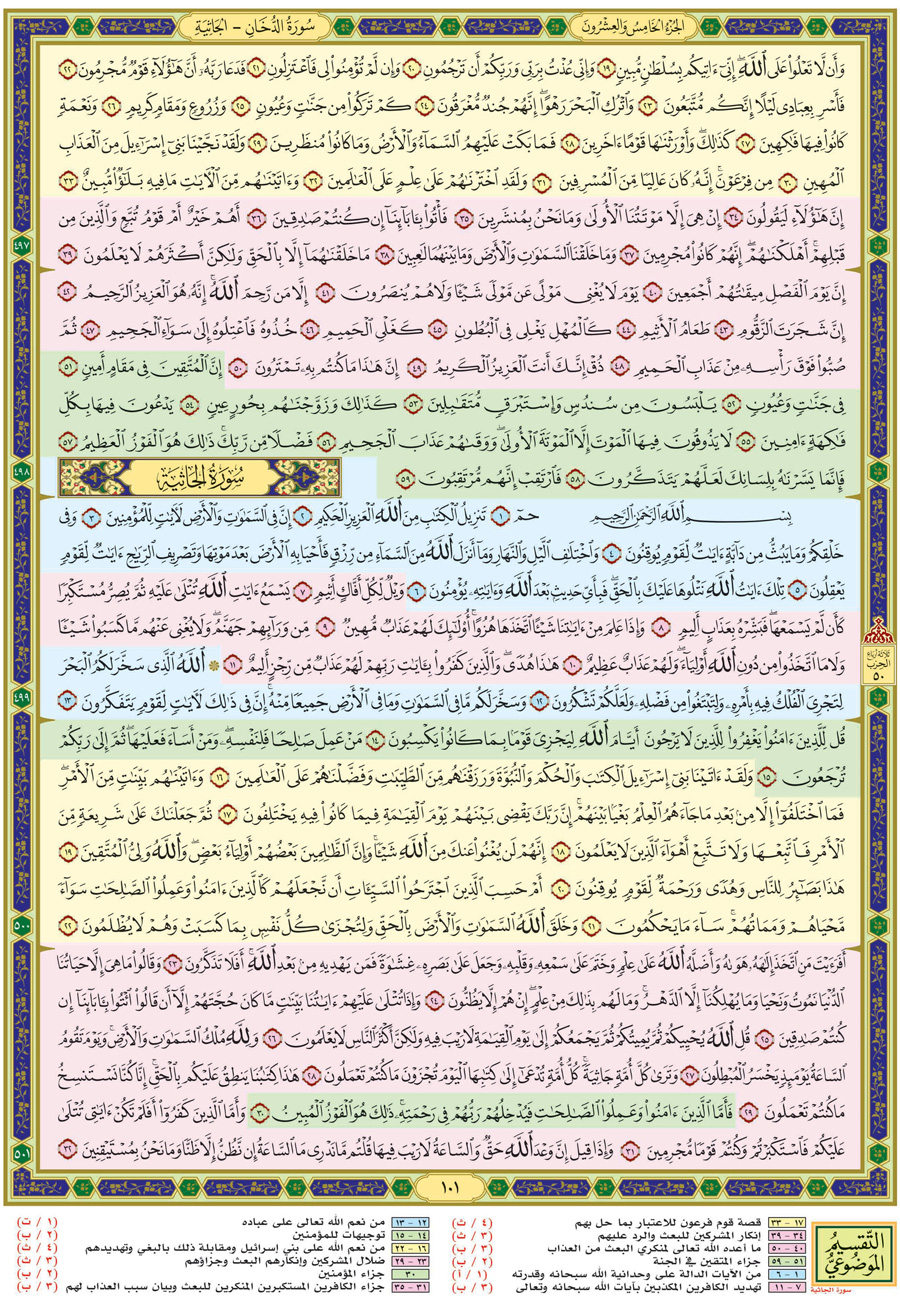 الجزء الخامس والعشرون
سورة الدخان - الجاثية
وَأَن لَّا تَعْلُوا۟ عَلَى ٱللَّهِ ۖ إِنِّىٓ ءَاتِيكُم بِسُلْطَٰنٍ مُّبِينٍ ١٩ وَإِنِّى عُذْتُ بِرَبِّى وَرَبِّكُمْ أَن تَرْجُمُونِ ٢٠ وَإِن لَّمْ تُؤْمِنُوا۟ لِى فَٱعْتَزِلُونِ ٢١ فَدَعَا رَبَّهُۥٓ أَنَّ هَٰٓؤُلَآءِ قَوْمٌ مُّجْرِمُونَ ٢٢
فَأَسْرِ بِعِبَادِى لَيْلًا إِنَّكُم مُّتَّبَعُونَ ٢٣ وَٱتْرُكِ ٱلْبَحْرَ رَهْوًا ۖ إِنَّهُمْ جُندٌ مُّغْرَقُونَ ٢٤ كَمْ تَرَكُوا۟ مِن جَنَّٰتٍ وَعُيُونٍ ٢٥ وَزُرُوعٍ وَمَقَامٍ كَرِيمٍ ٢٦ وَنَعْمَةٍ
كَانُوا۟ فِيهَا فَٰكِهِينَ ٢٧ كَذَٰلِكَ ۖ وَأَوْرَثْنَٰهَا قَوْمًا ءَاخَرِينَ ٢٨ فَمَا بَكَتْ عَلَيْهِمُ ٱلسَّمَآءُ وَٱلْأَرْضُ وَمَا كَانُوا۟ مُنظَرِينَ ٢٩ وَلَقَدْ نَجَّيْنَا بَنِىٓ إِسْرَٰٓءِيلَ مِنَ ٱلْعَذَابِ
ٱلْمُهِينِ ٣٠ مِن فِرْعَوْنَ ۚ إِنَّهُۥ كَانَ عَالِيًا مِّنَ ٱلْمُسْرِفِينَ ٣١ وَلَقَدِ ٱخْتَرْنَٰهُمْ عَلَىٰ عِلْمٍ عَلَى ٱلْعَٰلَمِينَ ٣٢ وَءَاتَيْنَٰهُم مِّنَ ٱلْءَايَٰتِ مَا فِيهِ بَلَٰٓؤٌا۟ مُّبِينٌ ٣٣
إِنَّ هَٰٓؤُلَآءِ لَيَقُولُونَ ٣٤ إِنْ هِىَ إِلَّا مَوْتَتُنَا ٱلْأُولَىٰ وَمَا نَحْنُ بِمُنشَرِينَ ٣٥ فَأْتُوا۟ بِـَٔابَآئِنَآ إِن كُنتُمْ صَٰدِقِينَ ٣٦ أَهُمْ خَيْرٌ أَمْ قَوْمُ تُبَّعٍ وَٱلَّذِينَ مِن
قَبْلِهِمْ ۚ أَهْلَكْنَٰهُمْ ۖ إِنَّهُمْ كَانُوا۟ مُجْرِمِينَ ٣٧ وَمَا خَلَقْنَا ٱلسَّمَٰوَٰتِ وَٱلْأَرْضَ وَمَا بَيْنَهُمَا لَٰعِبِينَ ٣٨ مَا خَلَقْنَٰهُمَآ إِلَّا بِٱلْحَقِّ وَلَٰكِنَّ أَكْثَرَهُمْ لَا يَعْلَمُونَ ٣٩
٤٩٧
إِنَّ يَوْمَ ٱلْفَصْلِ مِيقَٰتُهُمْ أَجْمَعِينَ ٤٠ يَوْمَ لَا يُغْنِى مَوْلًى عَن مَّوْلًى شَيْـًٔا وَلَا هُمْ يُنصَرُونَ ٤١ إِلَّا مَن رَّحِمَ ٱللَّهُ ۚ إِنَّهُۥ هُوَ ٱلْعَزِيزُ ٱلرَّحِيمُ ٤٢
إِنَّ شَجَرَتَ ٱلزَّقُّومِ ٤٣ طَعَامُ ٱلْأَثِيمِ ٤٤ كَٱلْمُهْلِ يَغْلِى فِى ٱلْبُطُونِ ٤٥ كَغَلْىِ ٱلْحَمِيمِ ٤٦ خُذُوهُ فَٱعْتِلُوهُ إِلَىٰ سَوَآءِ ٱلْجَحِيمِ ٤٧ ثُمَّ
صُبُّوا۟ فَوْقَ رَأْسِهِۦ مِنْ عَذَابِ ٱلْحَمِيمِ ٤٨ ذُقْ إِنَّكَ أَنتَ ٱلْعَزِيزُ ٱلْكَرِيمُ ٤٩ إِنَّ هَٰذَا مَا كُنتُم بِهِۦ تَمْتَرُونَ ٥٠ إِنَّ ٱلْمُتَّقِينَ فِى مَقَامٍ أَمِينٍ ٥١
فِى جَنَّٰتٍ وَعُيُونٍ ٥٢ يَلْبَسُونَ مِن سُندُسٍ وَإِسْتَبْرَقٍ مُّتَقَٰبِلِينَ ٥٣ كَذَٰلِكَ وَزَوَّجْنَٰهُم بِحُورٍ عِينٍ ٥٤ يَدْعُونَ فِيهَا بِكُلِّ
فَٰكِهَةٍ ءَامِنِينَ ٥٥ لَا يَذُوقُونَ فِيهَا ٱلْمَوْتَ إِلَّا ٱلْمَوْتَةَ ٱلْأُولَىٰ ۖ وَوَقَىٰهُمْ عَذَابَ ٱلْجَحِيمِ ٥٦ فَضْلًا مِّن رَّبِّكَ ۚ ذَٰلِكَ هُوَ ٱلْفَوْزُ ٱلْعَظِيمُ ٥٧
فَإِنَّمَا يَسَّرْنَٰهُ بِلِسَانِكَ لَعَلَّهُمْ يَتَذَكَّرُونَ ٥٨ فَٱرْتَقِبْ إِنَّهُم مُّرْتَقِبُونَ ٥٩
سُورَةُ الجَاثِيَةِ
٤٩٨
بِسْمِ ٱللَّهِ ٱلرَّحْمَٰنِ ٱلرَّحِيمِ حمٓ ١ تَنزِيلُ ٱلْكِتَٰبِ مِنَ ٱللَّهِ ٱلْعَزِيزِ ٱلْحَكِيمِ ٢ إِنَّ فِى ٱلسَّمَٰوَٰتِ وَٱلْأَرْضِ لَءَايَٰتٍ لِّلْمُؤْمِنِينَ ٣ وَفِى
خَلْقِكُمْ وَمَا يَبُثُّ مِن دَآبَّةٍ ءَايَٰتٌ لِّقَوْمٍ يُوقِنُونَ ٤ وَٱخْتِلَٰفِ ٱلَّيْلِ وَٱلنَّهَارِ وَمَآ أَنزَلَ ٱللَّهُ مِنَ ٱلسَّمَآءِ مِن رِّزْقٍ فَأَحْيَا بِهِ ٱلْأَرْضَ بَعْدَ مَوْتِهَا وَتَصْرِيفِ ٱلرِّيَٰحِ ءَايَٰتٌ لِّقَوْمٍ
يَعْقِلُونَ ٥ تِلْكَ ءَايَٰتُ ٱللَّهِ نَتْلُوهَا عَلَيْكَ بِٱلْحَقِّ ۖ فَبِأَىِّ حَدِيثٍۭ بَعْدَ ٱللَّهِ وَءَايَٰتِهِۦ يُؤْمِنُونَ ٦ وَيْلٌ لِّكُلِّ أَفَّاكٍ أَثِيمٍ ٧ يَسْمَعُ ءَايَٰتِ ٱللَّهِ تُتْلَىٰ عَلَيْهِ ثُمَّ يُصِرُّ مُسْتَكْبِرًا
كَأَن لَّمْ يَسْمَعْهَا ۖ فَبَشِّرْهُ بِعَذَابٍ أَلِيمٍ ٨ وَإِذَا عَلِمَ مِنْ ءَايَٰتِنَا شَيْـًٔا ٱتَّخَذَهَا هُزُوًا ۚ أُو۟لَٰٓئِكَ لَهُمْ عَذَابٌ مُّهِينٌ ٩ مِّن وَرَآئِهِمْ جَهَنَّمُ ۖ وَلَا يُغْنِى عَنْهُم مَّا كَسَبُوا۟ شَيْـًٔا
وَلَا مَا ٱتَّخَذُوا۟ مِن دُونِ ٱللَّهِ أَوْلِيَآءَ ۖ وَلَهُمْ عَذَابٌ عَظِيمٌ ١٠ هَٰذَا هُدًى ۖ وَٱلَّذِينَ كَفَرُوا۟ بِـَٔايَٰتِ رَبِّهِمْ لَهُمْ عَذَابٌ مِّن رِّجْزٍ أَلِيمٌ ١١ ۞ ٱللَّهُ ٱلَّذِى سَخَّرَ لَكُمُ ٱلْبَحْرَ
ثلاثة أرباع
الحزب
٥٠
لِتَجْرِىَ ٱلْفُلْكُ فِيهِ بِأَمْرِهِۦ وَلِتَبْتَغُوا۟ مِن فَضْلِهِۦ وَلَعَلَّكُمْ تَشْكُرُونَ ١٢ وَسَخَّرَ لَكُم مَّا فِى ٱلسَّمَٰوَٰتِ وَمَا فِى ٱلْأَرْضِ جَمِيعًا مِّنْهُ ۚ إِنَّ فِى ذَٰلِكَ لَءَايَٰتٍ لِّقَوْمٍ يَتَفَكَّرُونَ ١٣
٤٩٩
قُل لِّلَّذِينَ ءَامَنُوا۟ يَغْفِرُوا۟ لِلَّذِينَ لَا يَرْجُونَ أَيَّامَ ٱللَّهِ لِيَجْزِىَ قَوْمًۢا بِمَا كَانُوا۟ يَكْسِبُونَ ١٤ مَنْ عَمِلَ صَٰلِحًا فَلِنَفْسِهِۦ ۖ وَمَنْ أَسَآءَ فَعَلَيْهَا ۖ ثُمَّ إِلَىٰ رَبِّكُمْ
تُرْجَعُونَ ١٥ وَلَقَدْ ءَاتَيْنَا بَنِىٓ إِسْرَٰٓءِيلَ ٱلْكِتَٰبَ وَٱلْحُكْمَ وَٱلنُّبُوَّةَ وَرَزَقْنَٰهُم مِّنَ ٱلطَّيِّبَٰتِ وَفَضَّلْنَٰهُمْ عَلَى ٱلْعَٰلَمِينَ ١٦ وَءَاتَيْنَٰهُم بَيِّنَٰتٍ مِّنَ ٱلْأَمْرِ ۖ
فَمَا ٱخْتَلَفُوٓا۟ إِلَّا مِنۢ بَعْدِ مَا جَآءَهُمُ ٱلْعِلْمُ بَغْيًۢا بَيْنَهُمْ ۚ إِنَّ رَبَّكَ يَقْضِى بَيْنَهُمْ يَوْمَ ٱلْقِيَٰمَةِ فِيمَا كَانُوا۟ فِيهِ يَخْتَلِفُونَ ١٧ ثُمَّ جَعَلْنَٰكَ عَلَىٰ شَرِيعَةٍ مِّنَ
ٱلْأَمْرِ فَٱتَّبِعْهَا وَلَا تَتَّبِعْ أَهْوَآءَ ٱلَّذِينَ لَا يَعْلَمُونَ ١٨ إِنَّهُمْ لَن يُغْنُوا۟ عَنكَ مِنَ ٱللَّهِ شَيْـًٔا ۚ وَإِنَّ ٱلظَّٰلِمِينَ بَعْضُهُمْ أَوْلِيَآءُ بَعْضٍ ۖ وَٱللَّهُ وَلِىُّ ٱلْمُتَّقِينَ ١٩
هَٰذَا بَصَٰٓئِرُ لِلنَّاسِ وَهُدًى وَرَحْمَةٌ لِّقَوْمٍ يُوقِنُونَ ٢٠ أَمْ حَسِبَ ٱلَّذِينَ ٱجْتَرَحُوا۟ ٱلسَّيِّـَٔاتِ أَن نَّجْعَلَهُمْ كَٱلَّذِينَ ءَامَنُوا۟ وَعَمِلُوا۟ ٱلصَّٰلِحَٰتِ سَوَآءً
مَّحْيَاهُمْ وَمَمَاتُهُمْ ۚ سَآءَ مَا يَحْكُمُونَ ٢١ وَخَلَقَ ٱللَّهُ ٱلسَّمَٰوَٰتِ وَٱلْأَرْضَ بِٱلْحَقِّ وَلِتُجْزَىٰ كُلُّ نَفْسٍۭ بِمَا كَسَبَتْ وَهُمْ لَا يُظْلَمُونَ ٢٢
٥٠٠
أَفَرَءَيْتَ مَنِ ٱتَّخَذَ إِلَٰهَهُۥ هَوَىٰهُ وَأَضَلَّهُ ٱللَّهُ عَلَىٰ عِلْمٍ وَخَتَمَ عَلَىٰ سَمْعِهِۦ وَقَلْبِهِۦ وَجَعَلَ عَلَىٰ بَصَرِهِۦ غِشَٰوَةً فَمَن يَهْدِيهِ مِنۢ بَعْدِ ٱللَّهِ ۚ أَفَلَا تَذَكَّرُونَ ٢٣ وَقَالُوا۟ مَا هِىَ إِلَّا حَيَاتُنَا
ٱلدُّنْيَا نَمُوتُ وَنَحْيَا وَمَا يُهْلِكُنَآ إِلَّا ٱلدَّهْرُ ۚ وَمَا لَهُم بِذَٰلِكَ مِنْ عِلْمٍ ۖ إِنْ هُمْ إِلَّا يَظُنُّونَ ٢٤ وَإِذَا تُتْلَىٰ عَلَيْهِمْ ءَايَٰتُنَا بَيِّنَٰتٍ مَّا كَانَ حُجَّتَهُمْ إِلَّآ أَن قَالُوا۟ ٱئْتُوا۟ بِـَٔابَآئِنَآ إِن
كُنتُمْ صَٰدِقِينَ ٢٥ قُلِ ٱللَّهُ يُحْيِيكُمْ ثُمَّ يُمِيتُكُمْ ثُمَّ يَجْمَعُكُمْ إِلَىٰ يَوْمِ ٱلْقِيَٰمَةِ لَا رَيْبَ فِيهِ وَلَٰكِنَّ أَكْثَرَ ٱلنَّاسِ لَا يَعْلَمُونَ ٢٦ وَلِلَّهِ مُلْكُ ٱلسَّمَٰوَٰتِ وَٱلْأَرْضِ ۚ وَيَوْمَ تَقُومُ
ٱلسَّاعَةُ يَوْمَئِذٍ يَخْسَرُ ٱلْمُبْطِلُونَ ٢٧ وَتَرَىٰ كُلَّ أُمَّةٍ جَاثِيَةً ۚ كُلُّ أُمَّةٍ تُدْعَىٰٓ إِلَىٰ كِتَٰبِهَا ٱلْيَوْمَ تُجْزَوْنَ مَا كُنتُمْ تَعْمَلُونَ ٢٨ هَٰذَا كِتَٰبُنَا يَنطِقُ عَلَيْكُم بِٱلْحَقِّ ۚ إِنَّا كُنَّا نَسْتَنسِخُ
مَا كُنتُمْ تَعْمَلُونَ ٢٩ فَأَمَّا ٱلَّذِينَ ءَامَنُوا۟ وَعَمِلُوا۟ ٱلصَّٰلِحَٰتِ فَيُدْخِلُهُمْ رَبُّهُمْ فِى رَحْمَتِهِۦ ۚ ذَٰلِكَ هُوَ ٱلْفَوْزُ ٱلْمُبِينُ ٣٠ وَأَمَّا ٱلَّذِينَ كَفَرُوٓا۟ أَفَلَمْ تَكُنْ ءَايَٰتِى تُتْلَىٰ
عَلَيْكُمْ فَٱسْتَكْبَرْتُمْ وَكُنتُمْ قَوْمًا مُّجْرِمِينَ ٣١ وَإِذَا قِيلَ إِنَّ وَعْدَ ٱللَّهِ حَقٌّ وَٱلسَّاعَةُ لَا رَيْبَ فِيهَا قُلْتُم مَّا نَدْرِى مَا ٱلسَّاعَةُ إِن نَّظُنُّ إِلَّا ظَنًّا وَمَا نَحْنُ بِمُسْتَيْقِنِينَ ٣٢
٥٠١
١٠١
التقسيم
الموضوعي
سورة الجاثية
١٧ - ٣٣ قصة قوم فرعون للاعتبار بما حل بهم (٤ / ث)
٣٤ - ٣٩ إنكار المشركين للبعث والرد عليهم (٣ / ث)
٤٠ - ٥٠ ما أعده الله تعالى لمنكري البعث من العذاب (٣ / ب)
٥١ - ٥٩ جزاء المتقين في الجنة (٢ / ب)
١ - ٦ من الآيات الدالة على وحدانية الله سبحانه وقدرته (١ / أ)
٧ - ١١ تهديد الكافرين المكذبين بآيات الله سبحانه وتعالى (٣ / ب)
١٢ - ١٣ من نعم الله تعالى على عباده (١ / ت)
١٤ - ١٥ توجيهات للمؤمنين (٢ / ب)
١٦ - ٢٢ من نعم الله على بني إسرائيل ومقابلة ذلك بالبغي وتهديدهم (٤ / ث)
٢٣ - ٢٩ ضلال المشركين وإنكارهم البعث وجزاؤهم (٣ / ث)
٣٠ جزاء المؤمنين (٢ / ب)
٣١ - ٣٥ جزاء الكافرين المستكبرين المنكرين للبعث وبيان سبب العذاب لهم (٣ / ب)